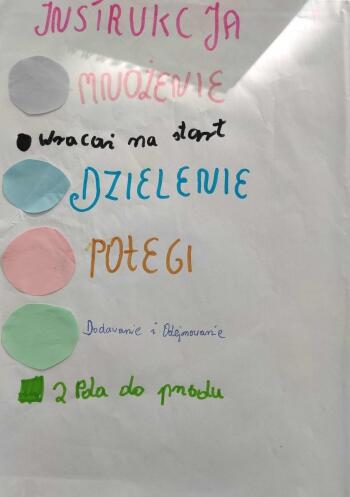 INSTRUKCJA
MNOŻENIE
Wracasz na start
DZIELENIE
POTĘGI
Dodavanie i Odejmowanie
2 Pola do przodu